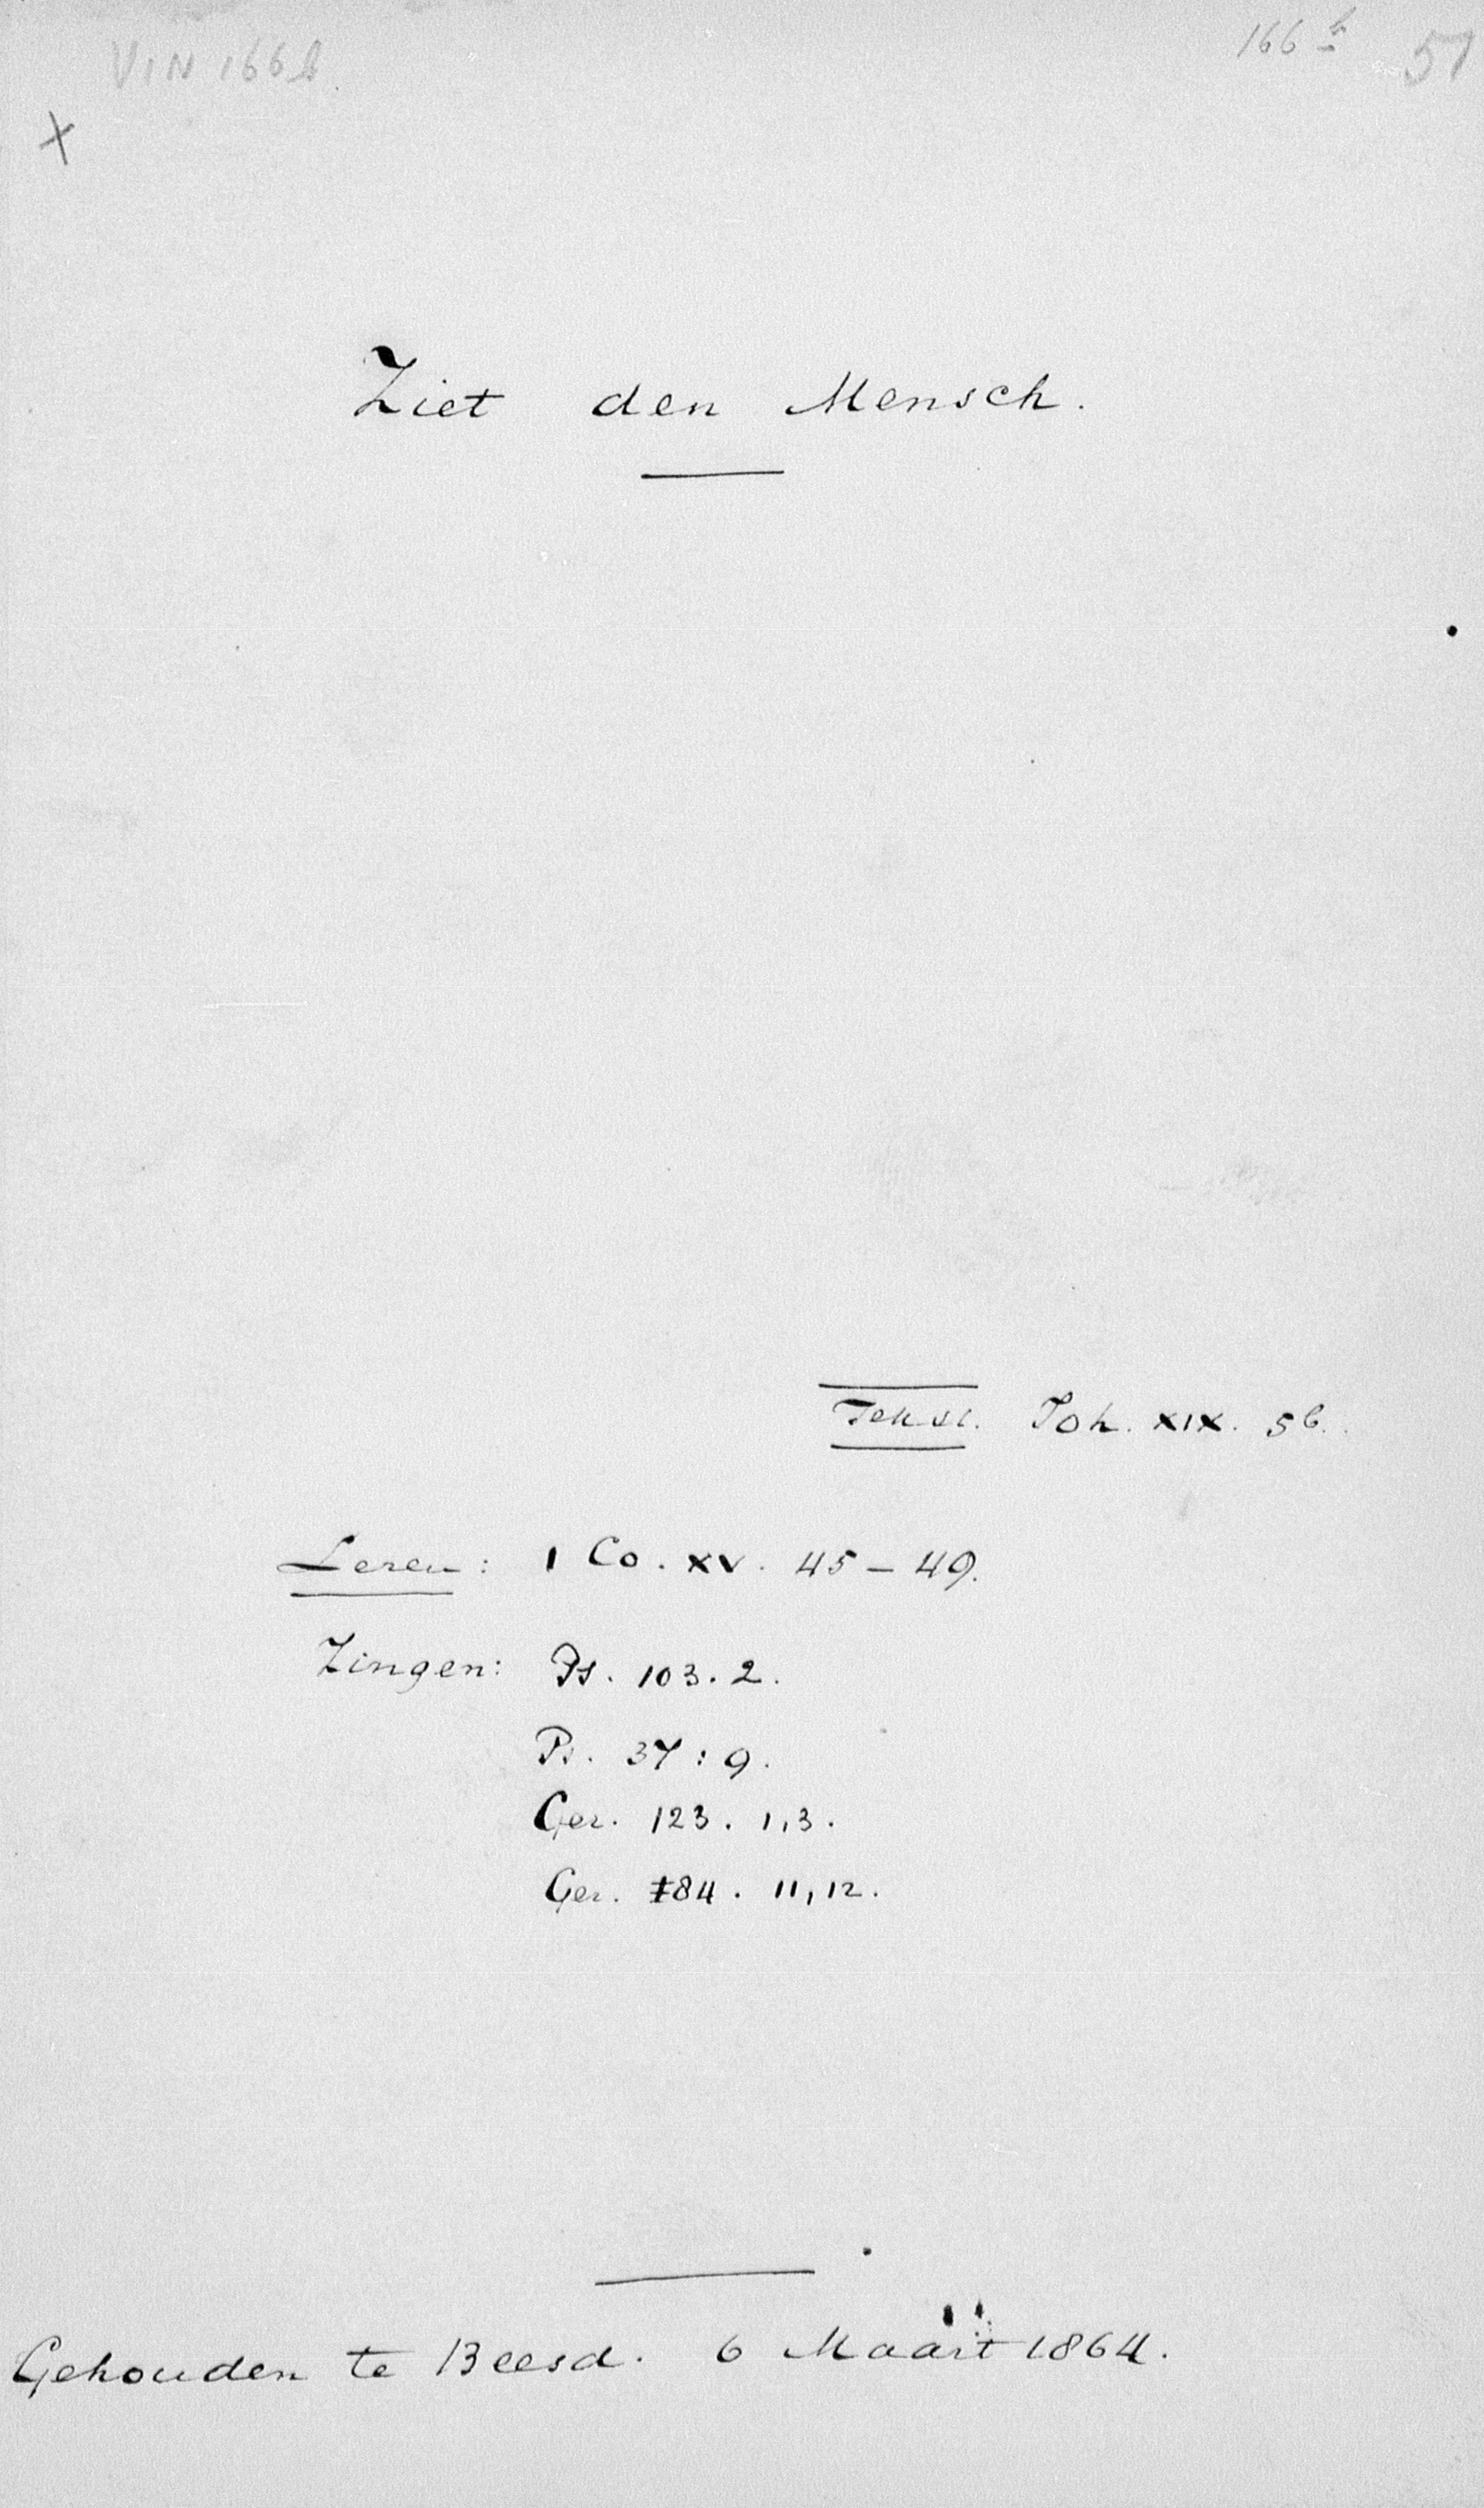 VIN 166b
166 b
51
X
Ziet den Mensch.
Tekst. Joh. XIX. 5b.
Lezen: 1 Co. XV. 45-49.
Zingen: Ps. 103. 2.
Ps. 37: 9.
Gez. 123. 1,3.
Gez. 184. 11, 12.
Gehouden te Beesd. 6 Maart 1864.